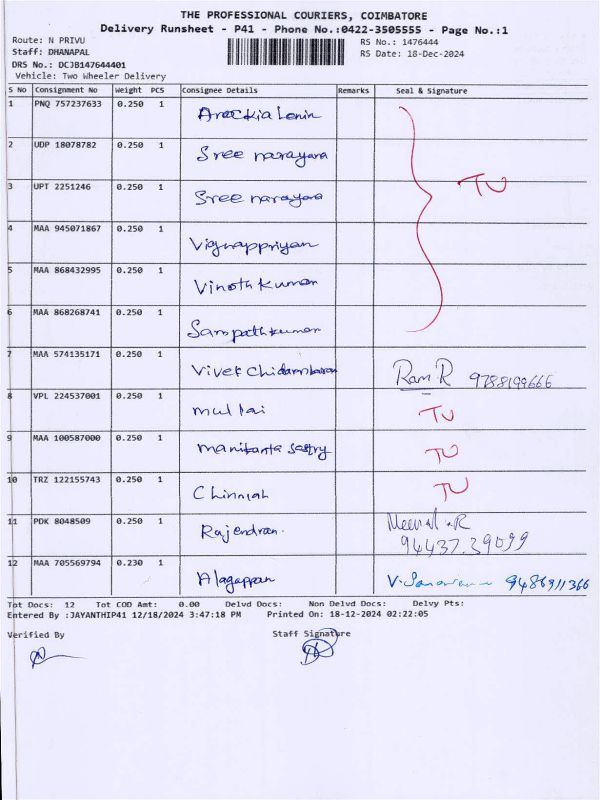 THE PROFESSIONAL COURIERS, COIMBATORE
Delivery Runsheet - P41 - Phone No.:0422-3505555 - Page No.:1
Route: N PRIVU
RS No.: 1476444
Staff: DHANAPAL
RS Date: 18-Dec-2024
DRS No.: DCJB147644401
Vehicle: Two Wheeler Delivery
S No Consignment No Weight PCS Consignee Details Remarks Seal & Signature
1 PNQ 757237633 0.250 1 Arockia Lenin
2 UDP 18078782 0.250 1 Sree narayana
3 UPT 2251246 0.250 1 Sree narayana TU
4 MAA 945071867 0.250 1 Vignappriyan
5 MAA 868432995 0.250 1 Vinoth Kumar
6 MAA 868268741 0.250 1 Sampathkumar
7 MAA 574135171 0.250 1 Vivek Chidambaram Ram.R 9788199666
8 VPL 224537001 0.250 1 mullai TU
9 MAA 100587000 0.250 1 manikanta sastry TU
10 TRZ 122155743 0.250 1 Chinniah TU
11 PDK 8048509 0.250 1 Rajendran. 94437.39099
12 MAA 705569794 0.230 1 Alagappan
Tot Docs: 12 Tot COD Amt: 0.00 Delvd Docs: Non Delvd Docs: Delvy Pts:
Entered By :JAYANTHIP41 12/18/2024 3:47:18 PM Printed On: 18-12-2024 02:22:05
Verified By Staff Signature